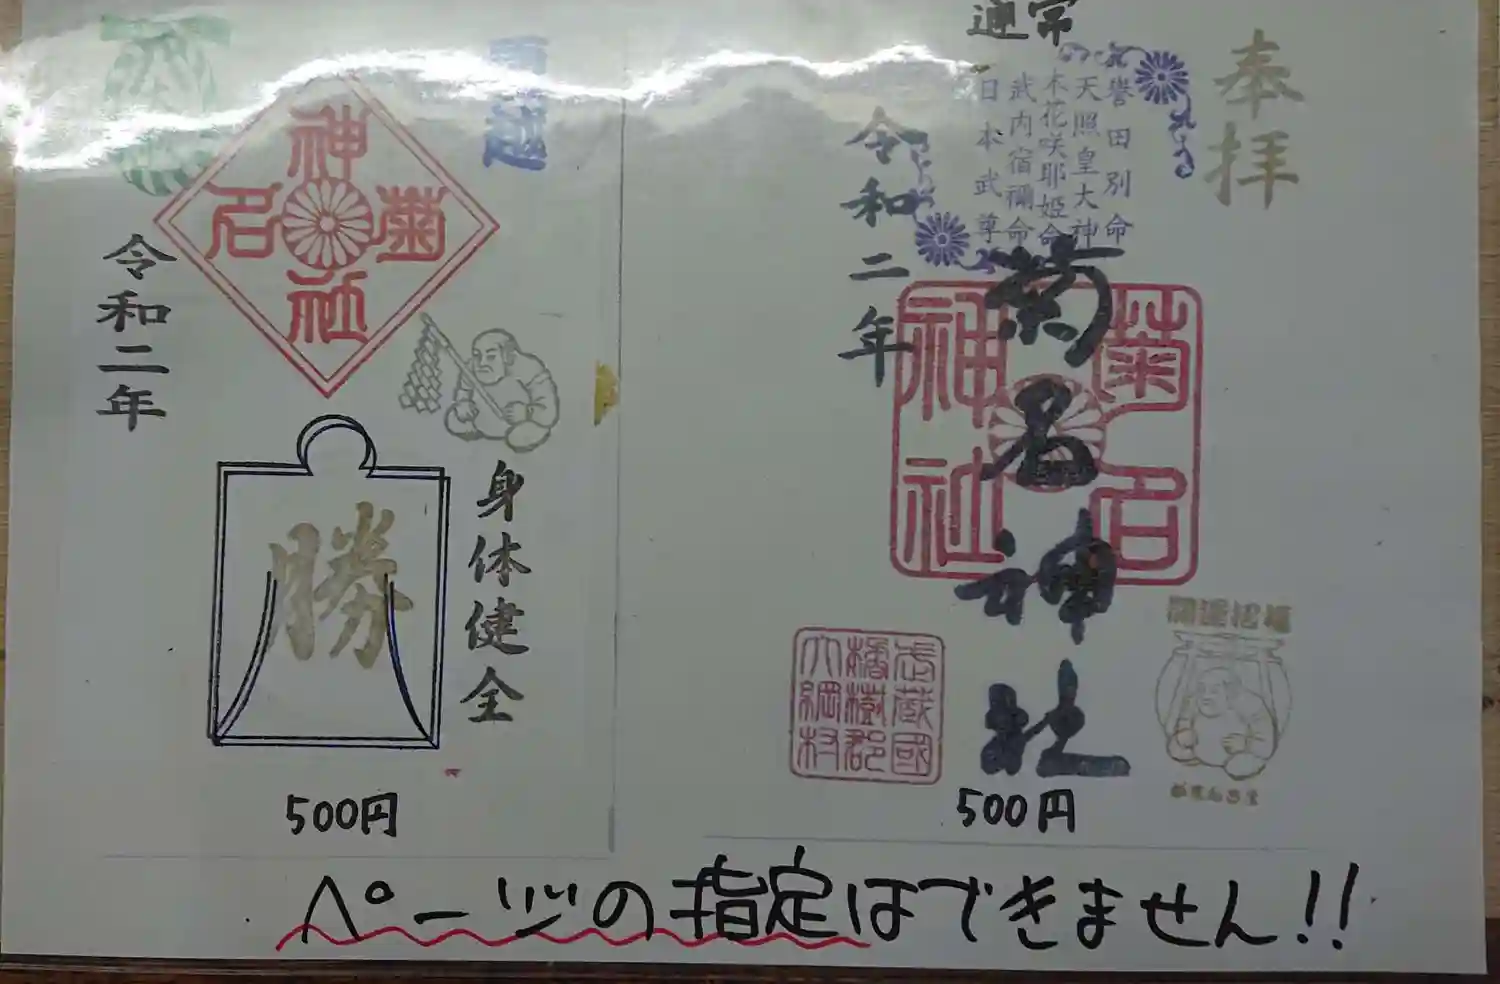 通常
奉拝
誉田別命
天照皇大神
木花咲耶姫命
武内宿禰命
日本武尊
令和二年
菊名神社
菊名
神社
武蔵國
橘樹郡
大綱村
開運招福
がまんさま
500円
夏越
神社
菊名
令和二年
勝
身体健全
500円
ページの指定はできません!!